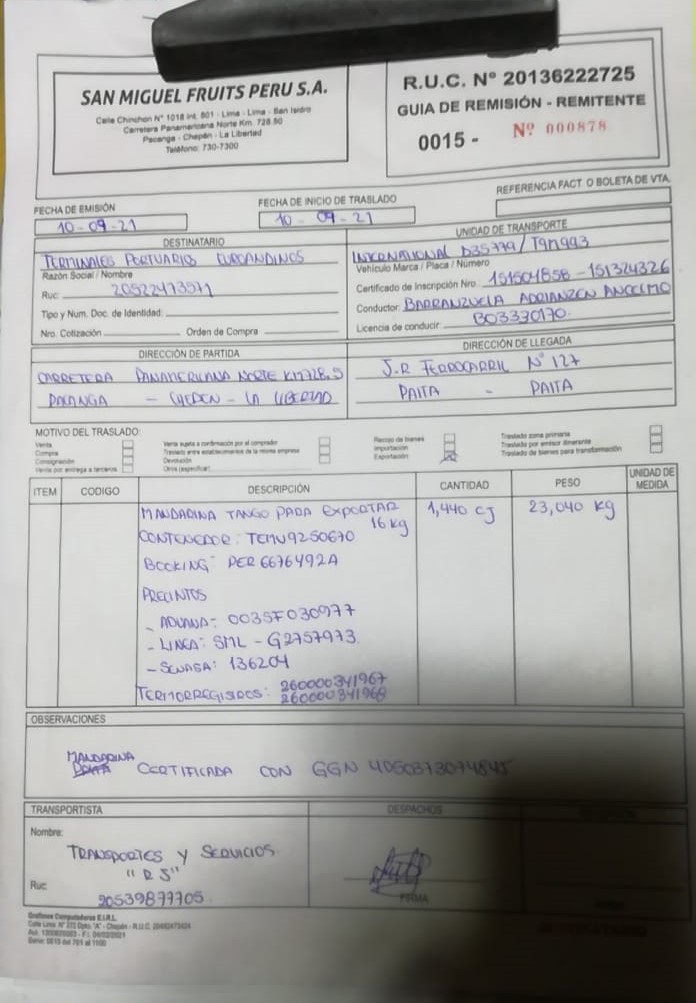 SAN MIGUEL FRUITS PERU S.A.
Calle Chinchon N° 1018 Int. 801 - Lima - Lima - San Isidro
Carretera Panamericana Norte Km. 728.50
Pacanga - Chepén - La Libertad
Teléfono: 730-7300
R.U.C. N° 20136222725
GUIA DE REMISIÓN - REMITENTE
0015 - Nº 000878
FECHA DE EMISIÓN
10-09-21
FECHA DE INICIO DE TRASLADO
10-09-21
REFERENCIA FACT. O BOLETA DE VTA.
DESTINATARIO
TERMINALES PORTUARIOS EUROANDINOS
Razón Social / Nombre
Ruc: 20522473571
Tipo y Num. Doc. de Identidad:
Nro. Cotización Orden de Compra
UNIDAD DE TRANSPORTE
INTERNATIONAL D3S779 / T9M993
Vehículo Marca / Placa / Número
Certificado de Inscripción Nro. 151504858 - 151324326
Conductor: BARRANZUELA ADRIANZEN ANCELMO
Licencia de conducir: B03330170
DIRECCIÓN DE PARTIDA
CARRETERA PANAMERICANA NORTE KM728.5
PACANGA - CHEPEN - LA LIBERTAD
DIRECCIÓN DE LLEGADA
J.R FERROCARRIL N° 127
PAITA - PAITA
MOTIVO DEL TRASLADO:
Venta
Compra
Consignación
Venta por entrega a terceros
Venta sujeta a confirmación por el comprador
Traslado entre establecimientos de la misma empresa
Devolución
Otros (especificar)
Recojo de bienes
Importación
Exportación
Traslado zona primaria
Traslado por emisor itinerante
Traslado de bienes para transformación
ITEM CODIGO DESCRIPCIÓN CANTIDAD PESO UNIDAD DE MEDIDA
MANDARINA TANGO PARA EXPORTAR 1,440 CJ 23,040 Kg
16 kg
CONTENEDOR: TEMU9250670
BOOKING: PER6676492A
PRECINTOS
- ADUANA: 0035F030977
- LINEA: SML - G2757973
- SENASA: 136204
TERMORREGISTROS: 260000341967
260000341968
OBSERVACIONES
MANDARINA
CERTIFICADA CON GGN 4050373074845
TRANSPORTISTA
DESPACHOS
Nombre:
TRANSPORTES Y SERVICIOS
"R J"
Ruc: 20539877705
FIRMA
Grafinos Computadoras E.I.R.L.
Serie: 0015 del 701 al 1100